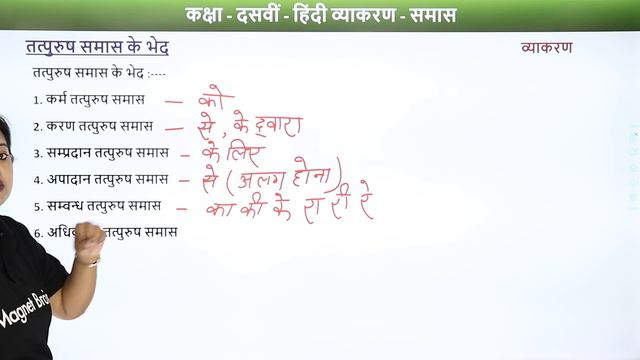 कक्षा - दसवीं - हिंदी व्याकरण - समास
तत्पुरुष समास के भेद
व्याकरण
तत्पुरुष समास के भेद :----
1. कर्म तत्पुरुष समास – को
2. करण तत्पुरुष समास – से , के द्वारा
3. सम्प्रदान तत्पुरुष समास – के लिए
4. अपादान तत्पुरुष समास – से ( अलग होना )
5. सम्वन्ध तत्पुरुष समास – का की के रा री रे
6. तत्पुरुष समास
Magnet